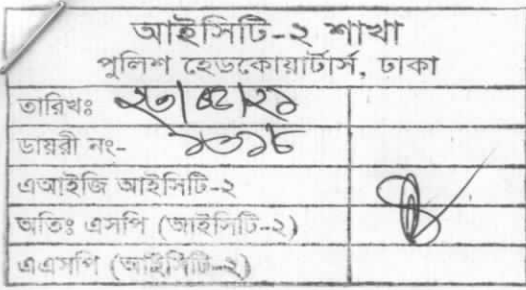 আইসিটি-২ শাখা
পুলিশ হেডকোয়ার্টার্স, ঢাকা
তারিখঃ
ডায়রী নং-
এআইজি আইসিটি-২
অতিঃ এসপি (আইসিটি-২)
এএসপি (আইসিটি-২)